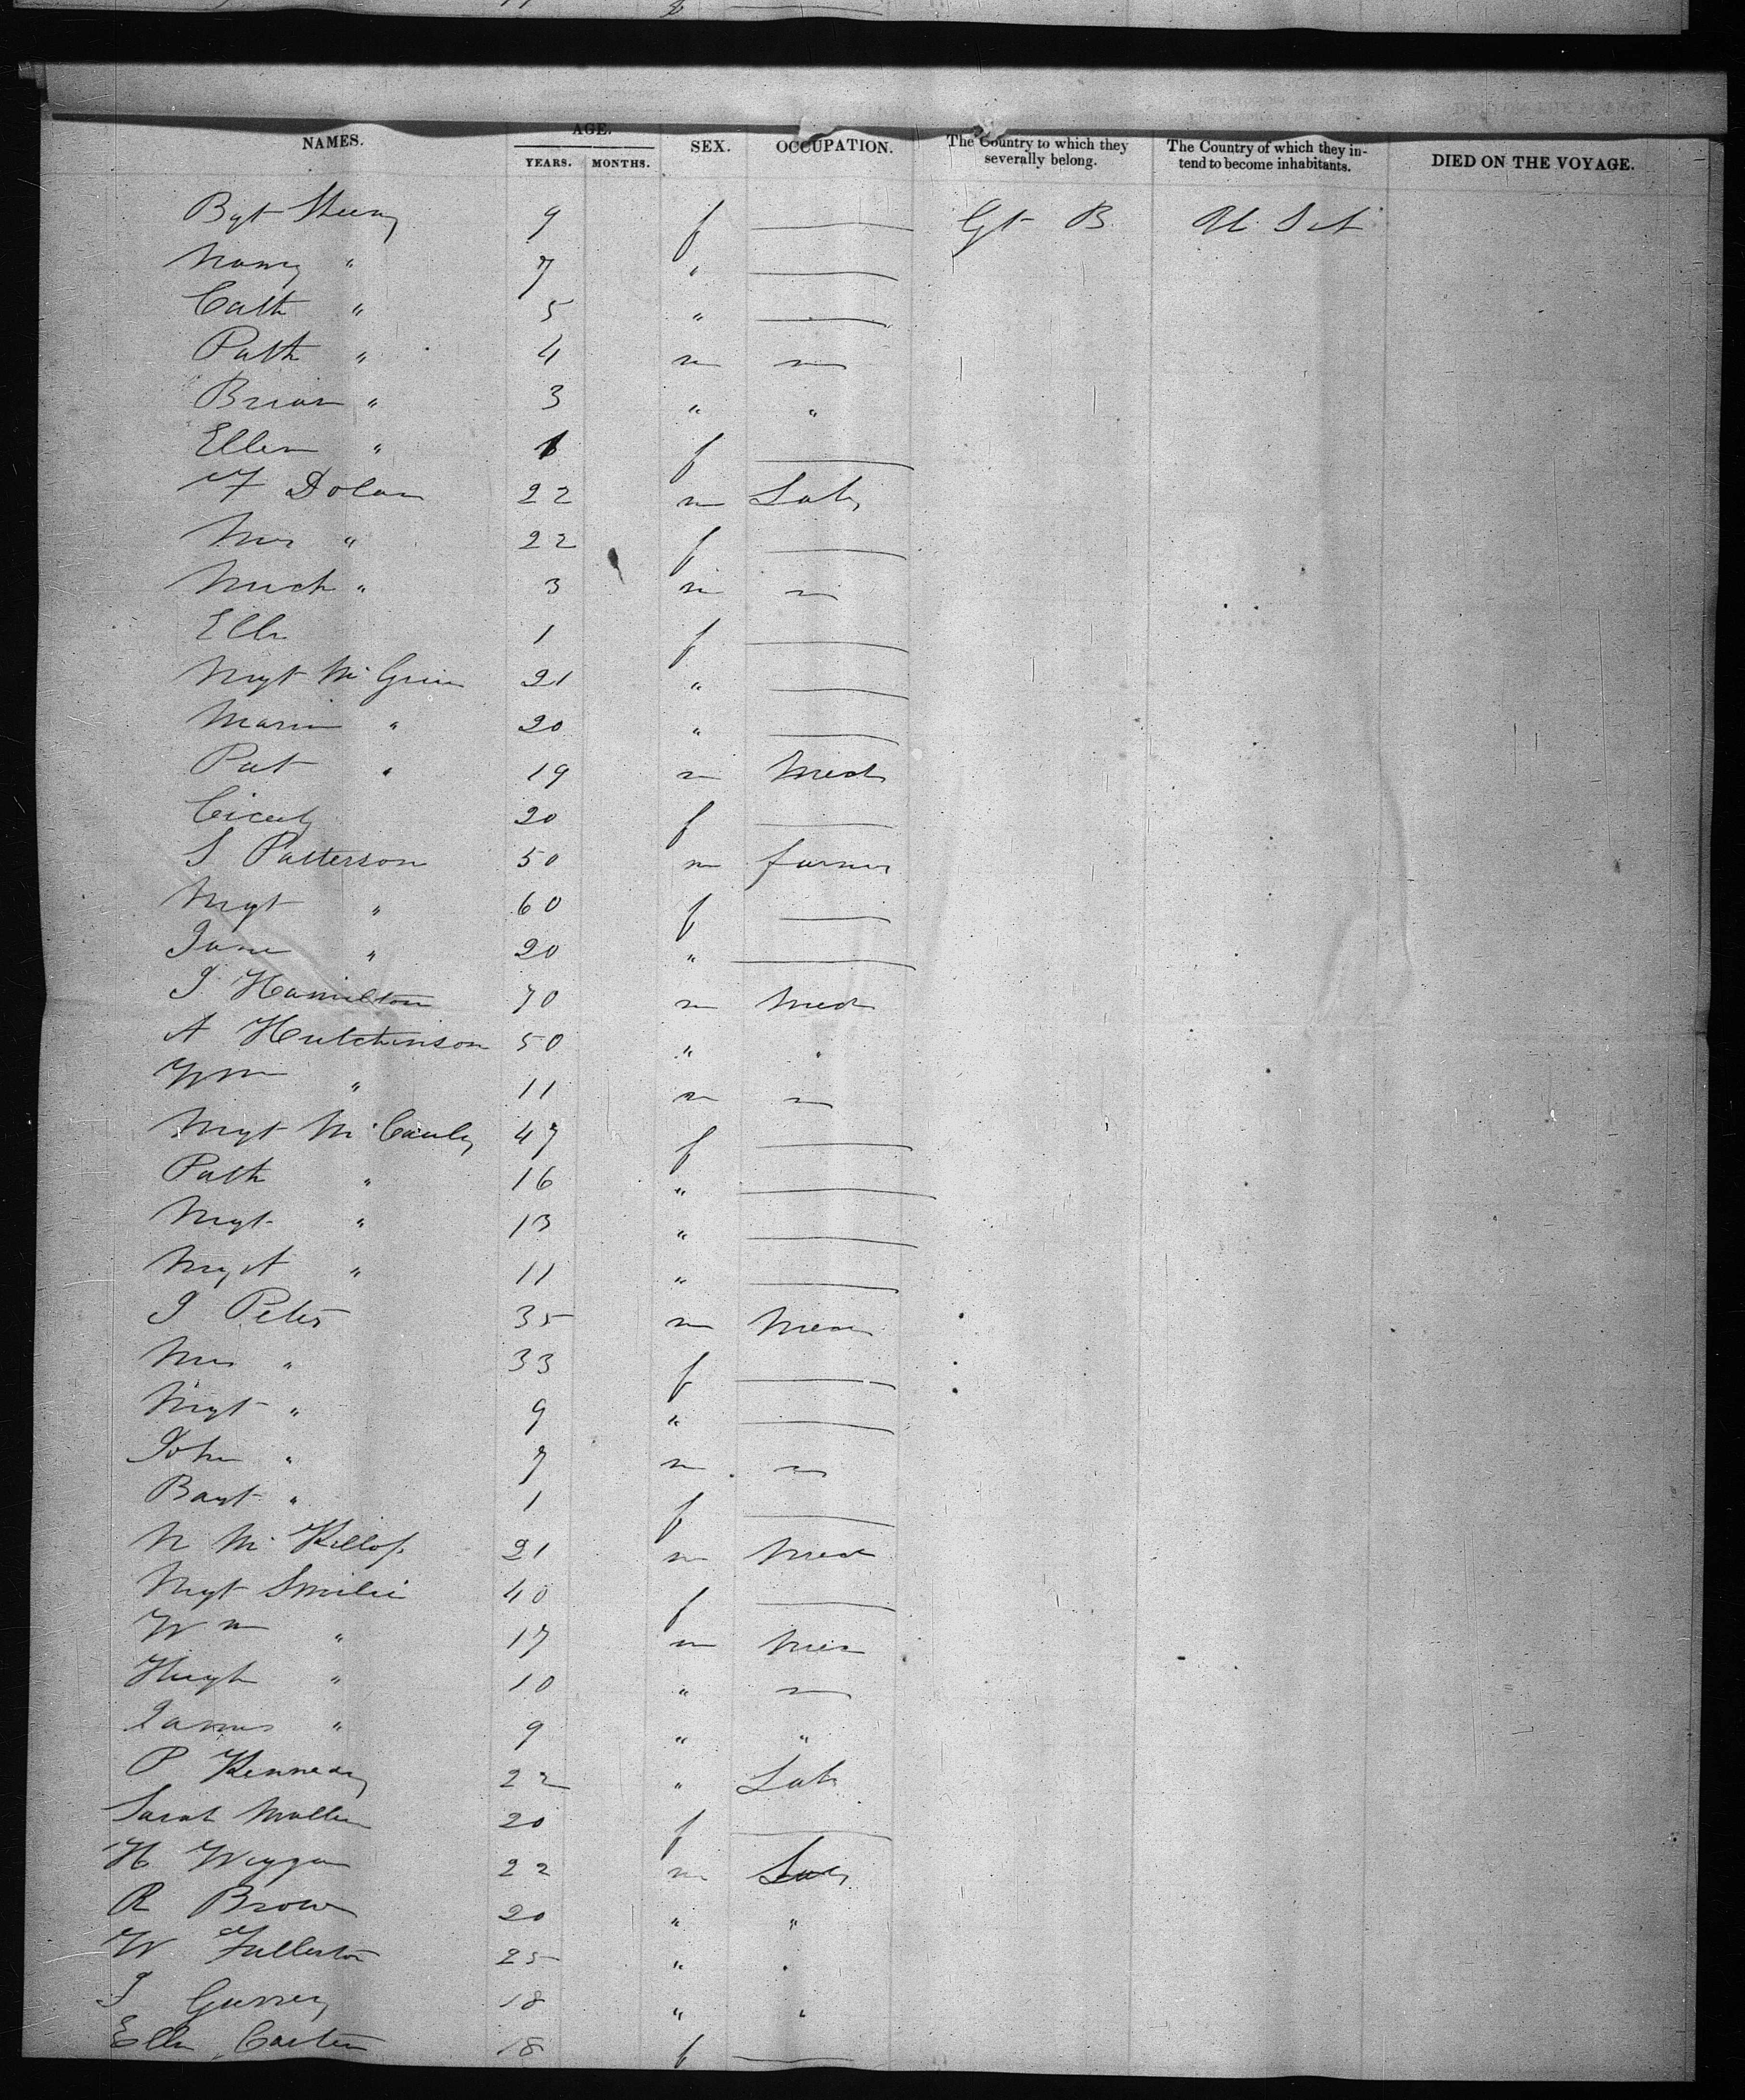 NAMES. AGE. SEX. OCCUPATION. The Country to which they severally belong. The Country of which they intend to become inhabitants. DIED ON THE VOYAGE.
YEARS. MONTHS.
Bgt 9 f — Gt B. U S A
Nancy " 7 " —
Cath " 5 " —
Path " 4 m m
Brian " 3 " "
Ellen " 1 f —
F Dolan 22 m Lab
Mrs " 22 f —
Mich " 3 m m
Ellen 1 f —
Mgt 21 " —
Maria " 20 " —
Pat " 19 m Mech
Cicely 20 f —
S Patterson 50 m farmer
Mgt " 60 f —
Jane " 20 " —
J Hamilton 70 m Mech
A Hutchinson 50 " "
Wm " 11 m m
Mgt McCauly 47 f —
Path " 16 " —
Mgt " 13 " —
Mgt " 11 " —
J Peter 35 m Mech
Mrs " 33 f —
Mgt " 9 " —
John " 7 m m
Bagt " 1 f —
N McKillop 21 m Mech
Mgt Smilie 40 f —
Wm " 17 m Mech
Hugh " 10 " m
James " 9 " "
P Kennedy 22 " Lab
Sarah Mullen 20 f —
H 22 m Lab
R Brown 20 " "
W Fullerton 25 " "
J 18 " "
Ellen 18 f —